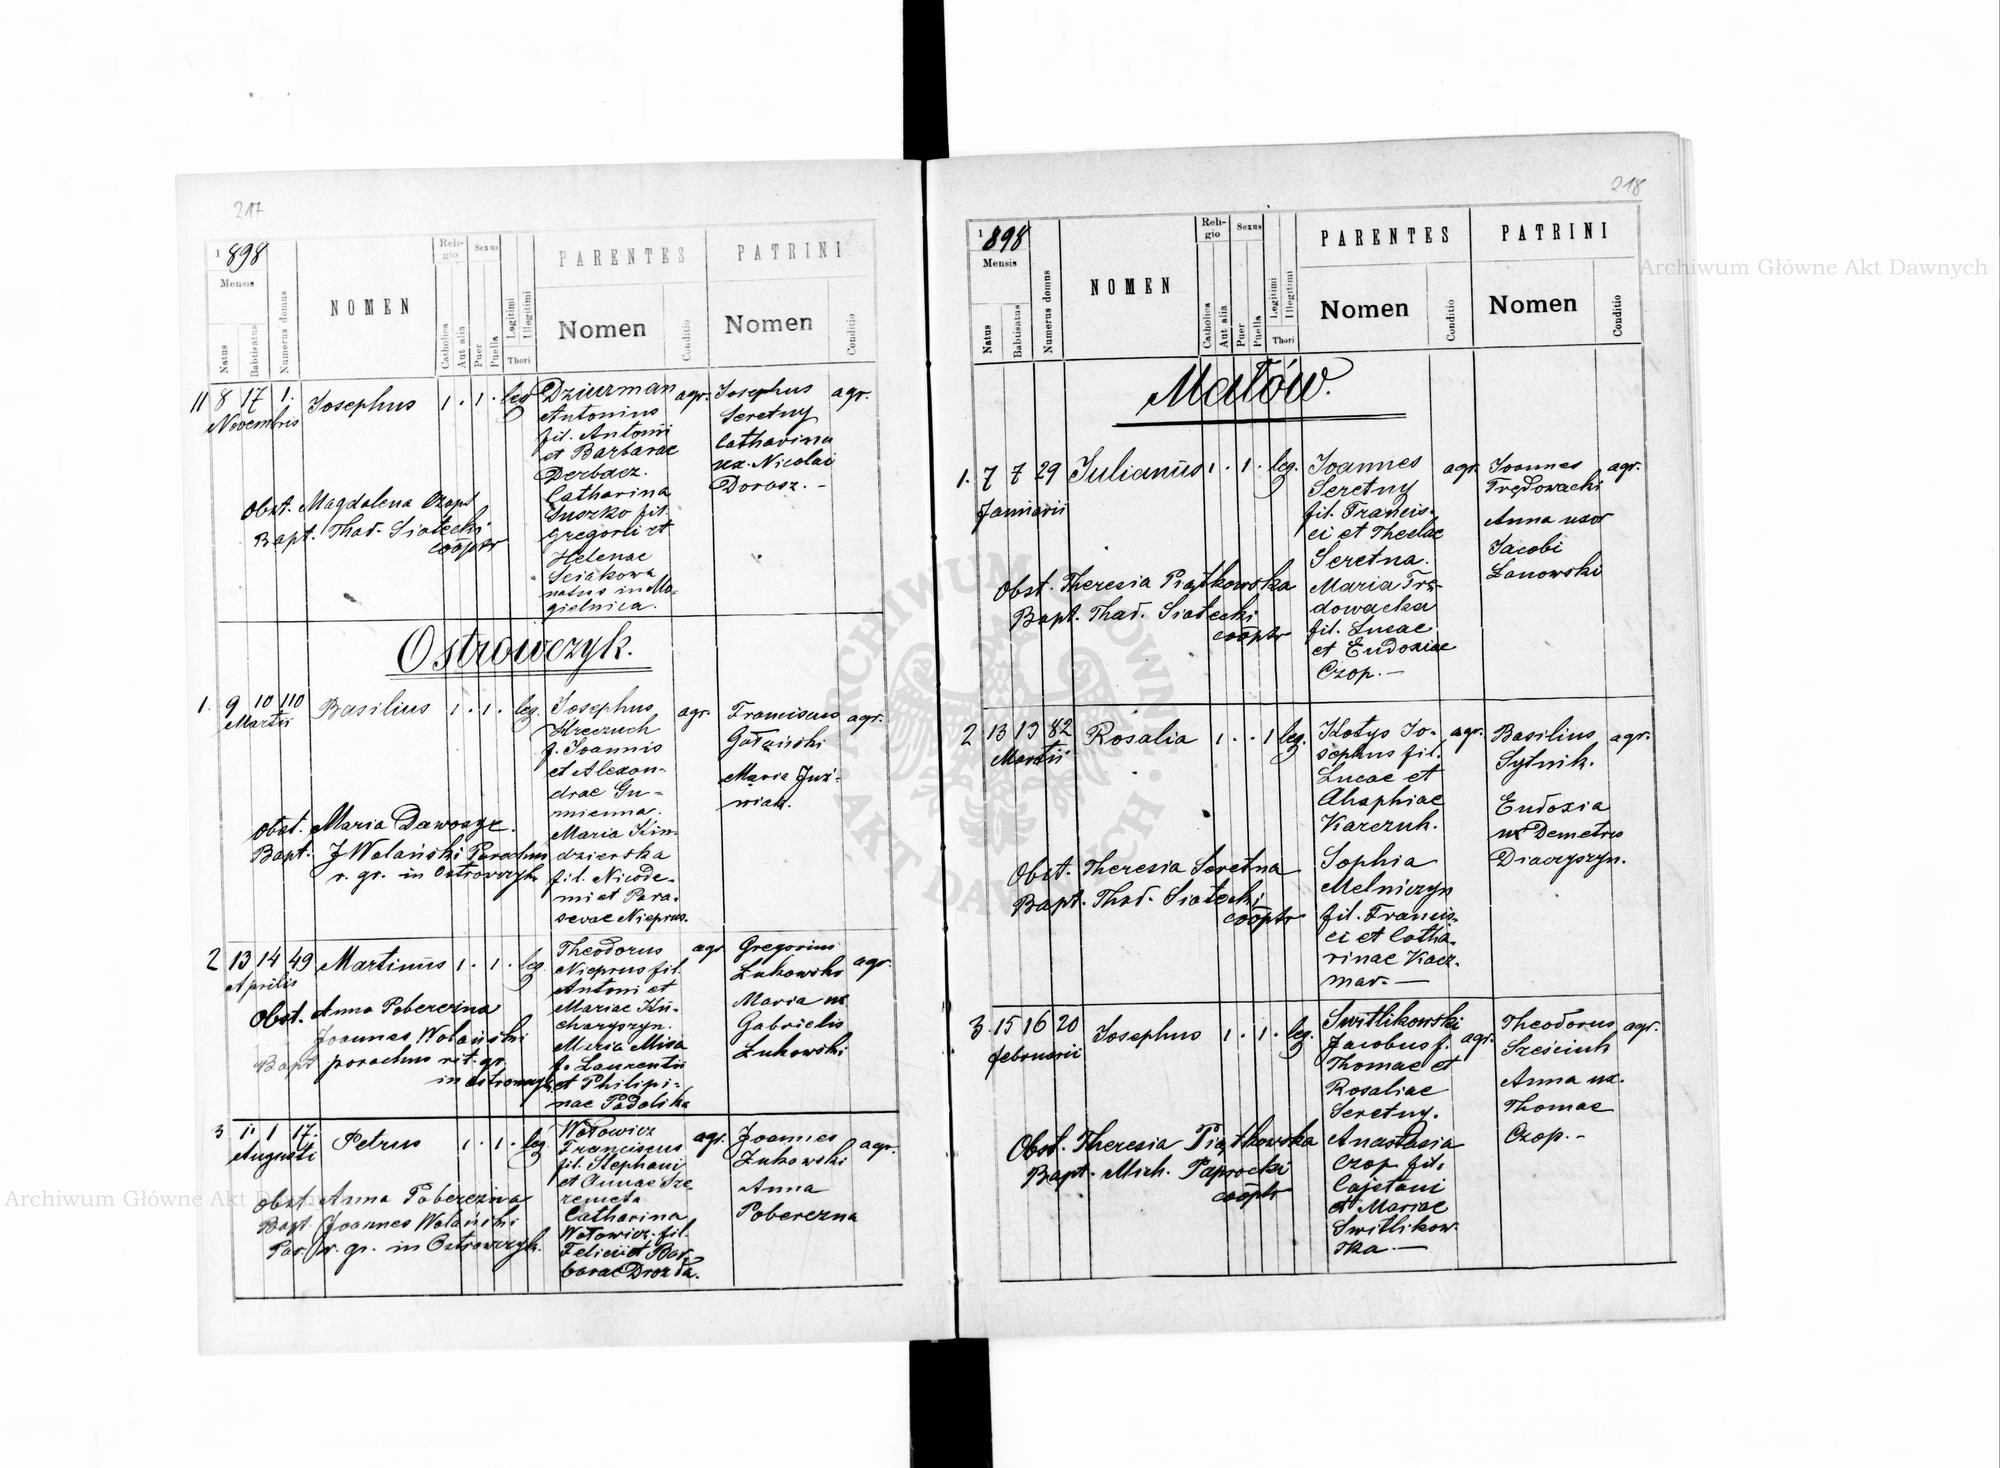 217
1898
Mensis
Natus
Babtisatus
Numerus domus
NOMEN
Reli-
gio
Catholica
Aut alia
Sexus
Puer
Puella
Legitimi
Illegitimi
Thori
PARENTES
Nomen
Conditio
PATRINI
Nomen
Conditio
11 8 17 1. Josephus 1 . 1 . leg
Novembris
Dziurman agr.
Antonius
fil. Antonii
et Barbarae
Derbacz.
Catharina
Suszko fil.
Gregorii et
Helenae
natus in Mo-
gielnica.
Josephus agr.
Seretny
Catharina
ux. Nicolai
Dorosz. -
Obst. Magdalena Czop
Bapt. Thad. Siatecki
cooptr
Ostrowczyk.
1. 9 10 110 Basilius 1 . 1 . leg.
Martii
Josephus agr.
f. Joannis
et Alexan-
drae Gu-
mienna.
Maria Kin-
dzierska
fil. Nicode-
mi et Para-
scevae Nieprus.
Franciscus agr.
Maria Juz-
wiak.
Obst. Maria Dawosyr.
Bapt. J Wolański Parochus
r. gr. in Ostrowczyk
2 13 14 49 Martinus 1 . 1 . leg.
Aprilis
Theodorus agr
Nieprus fil.
Antoni et
Mariae Ku-
charyszyn.
Maria Misa
f. Laurentii
et Philipi-
nae Podolska
Gregorius agr.
Zukowski
Maria ux
Gabrielis
Zukowski
Obst. Anna Poberezna
Joannes Wolański
Bapt parochus rit. gr.
in Ostrowczyk
3 1. 1 17 Petrus 1 . 1 . leg
Augusti
Wołowicz agr.
Franciscus
fil. Stephani
et Annae Sze
remeta
Catharina
Wołowicz. fil.
Felicii et Bar-
barae Drozda.
Joannes agr.
Zukowski
Anna
Poberezna
Obst. Anna Poberezna
Bapt. Joannes Wolański
Par. r. gr. in Ostrowczyk.
218
1898
Mensis
Natus
Babtisatus
Numerus domus
NOMEN
Reli-
gio
Catholica
Aut alia
Sexus
Puer
Puella
Legitimi
Illegitimi
Thori
PARENTES
Nomen
Conditio
PATRINI
Nomen
Conditio
Małów.
1. 7 7 29 Julianus 1 . 1 . leg.
Januarii
Joannes agr.
Seretny
fil. Francis-
ci et Theclae
Seretna.
Maria Trę-
dowacka
fil. Lucae
et Eudoxiae
Czop. -
Joannes agr.
Trędowacki
Anna uxor
Jacobi
Łanowski
Obst. Theresia Piątkowska
Bapt. Thad. Siatecki
cooptr
2 13 13 82 Rosalia 1 . . 1 leg.
Martii
Kotys Jo- agr.
sephus fil.
Lucae et
Ahaphiae
Karczuk.
Sophia
Melniczyn
fil. Francis-
ci et Catha-
rinae Kacz-
mar. -
Basilius agr.
Sytnik.
Eudoxia
ux Demetrii
Diaczyszyn.
Obst. Theresia Seretna
Bapt. Thad. Siatecki
cooptr
3. 15 16 20 Josephus 1 . 1 . leg.
Februarii
Switlikowski
Jacobus f. agr.
Thomae et
Rosaliae
Seretny.
Anastasia
Czop fil.
Cajetani
et Mariae
Switlikow-
ska -
Theodorus agr.
Sześciuk
Anna ux.
Thomae
Czop. -
Obst. Theresia Piątkowska
Bapt. Mich. Paprocki
cooptr
Archiwum Główne Akt Dawnych
Archiwum Główne Akt Dawnych
ARCHIWUM GŁÓWNE
AKT DAWNYCH